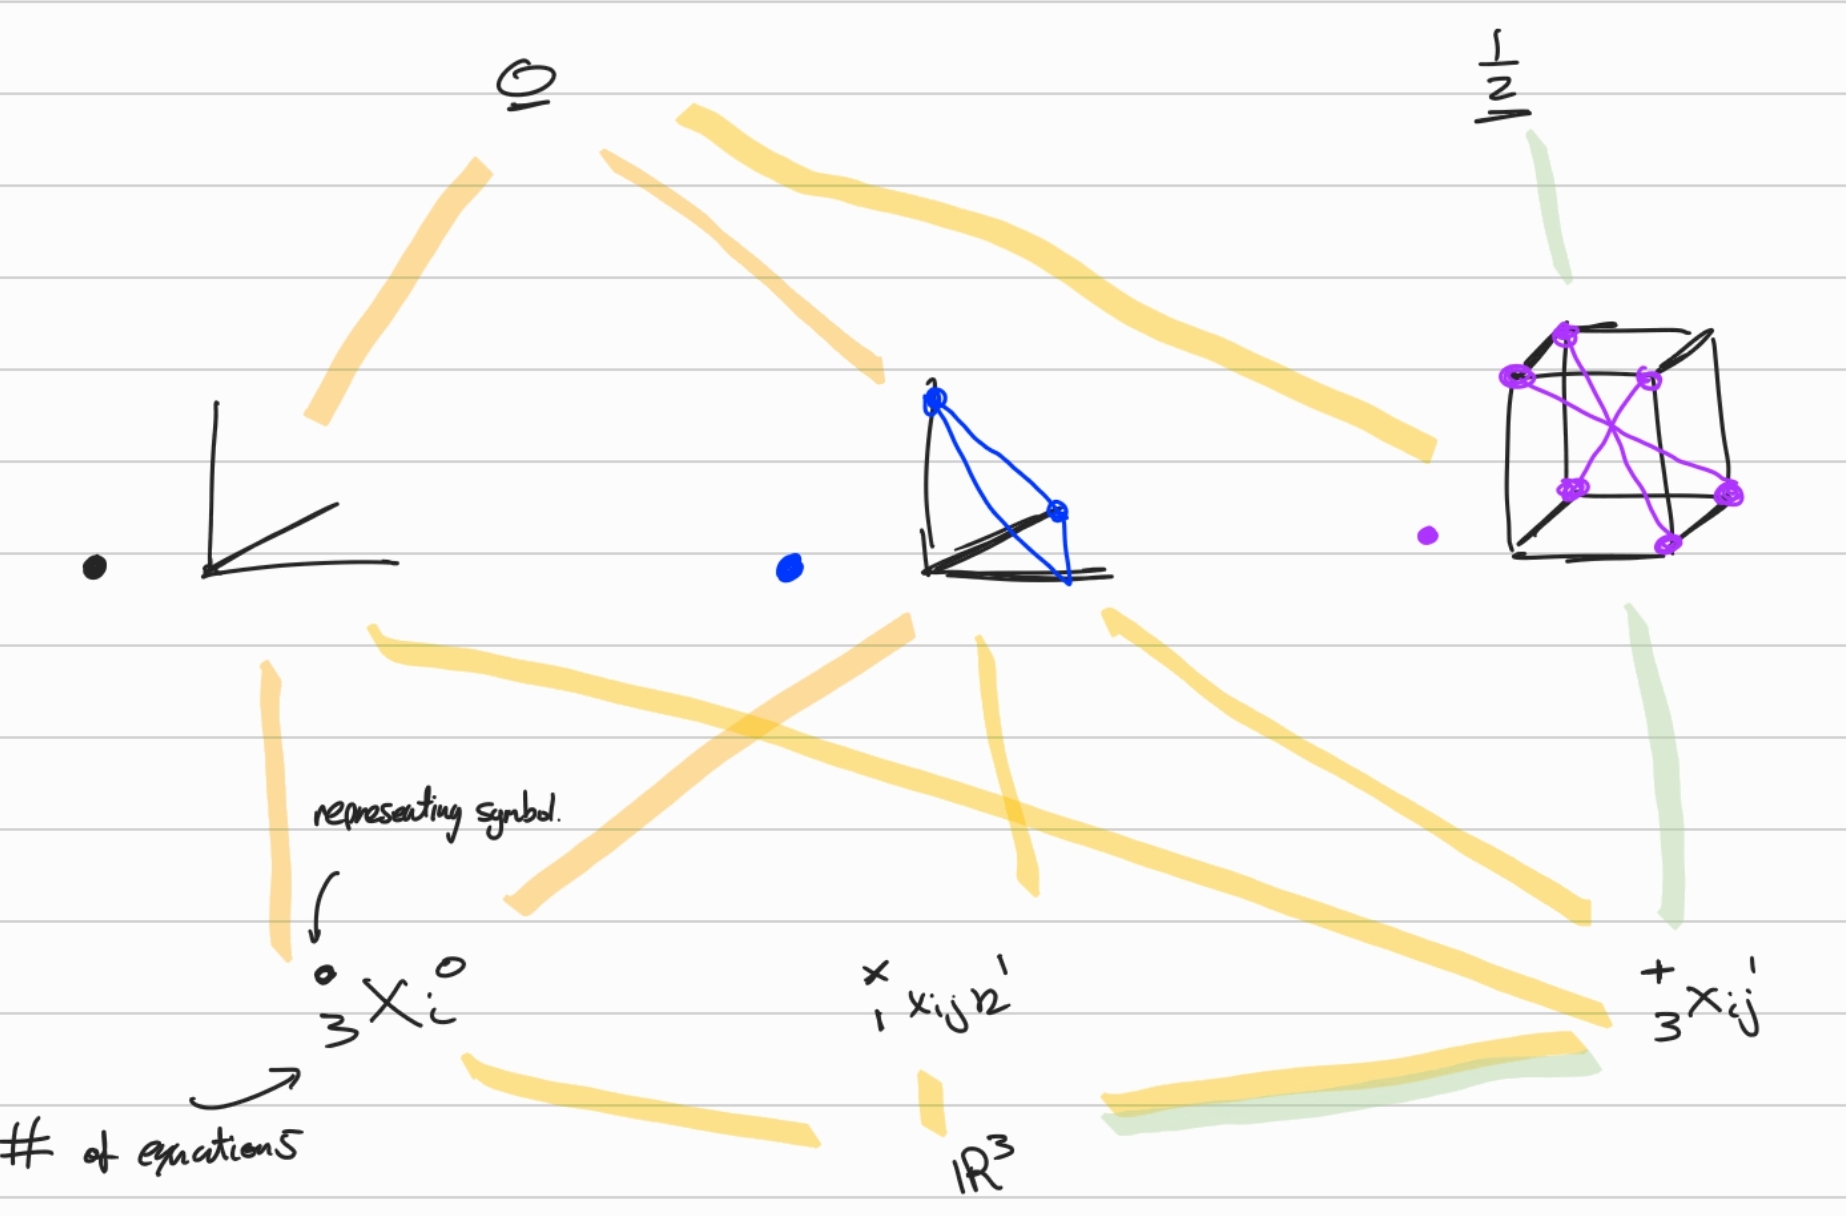 0
1/2
representing symbol.
• ₃Xᵢ⁰
× ₁xᵢⱼₖ¹
+ ₃xᵢⱼ¹
# of equations
ℝ³